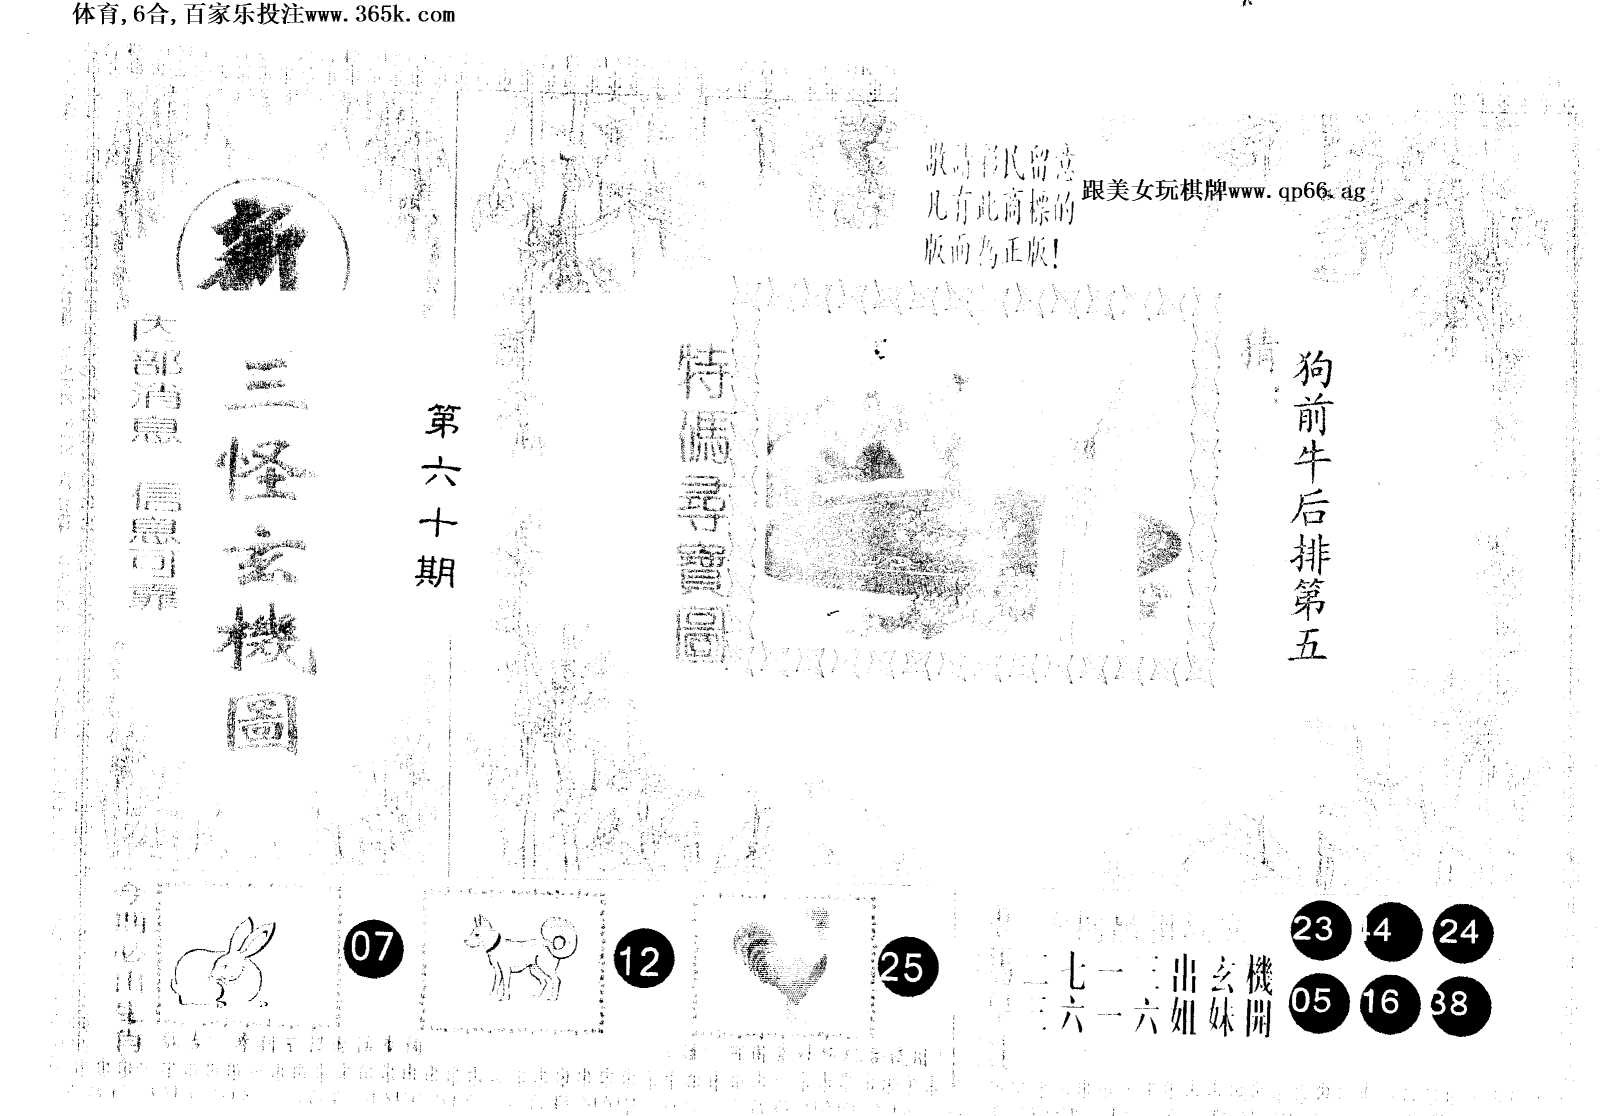 体育,6合,百家乐投注www.365k.com
敬请彩民留意
凡有此商標的
版面为正版!
跟美女玩棋牌www.qp66.ag
新
三怪玄機圖
内部消息 信息可靠
第六十期
特碼尋寶圖
猜:
狗前牛后排第五
今期必出生肖
07
12
25
二七一三出玄機
三六一六姐妹開
23 44 24
05 16 38